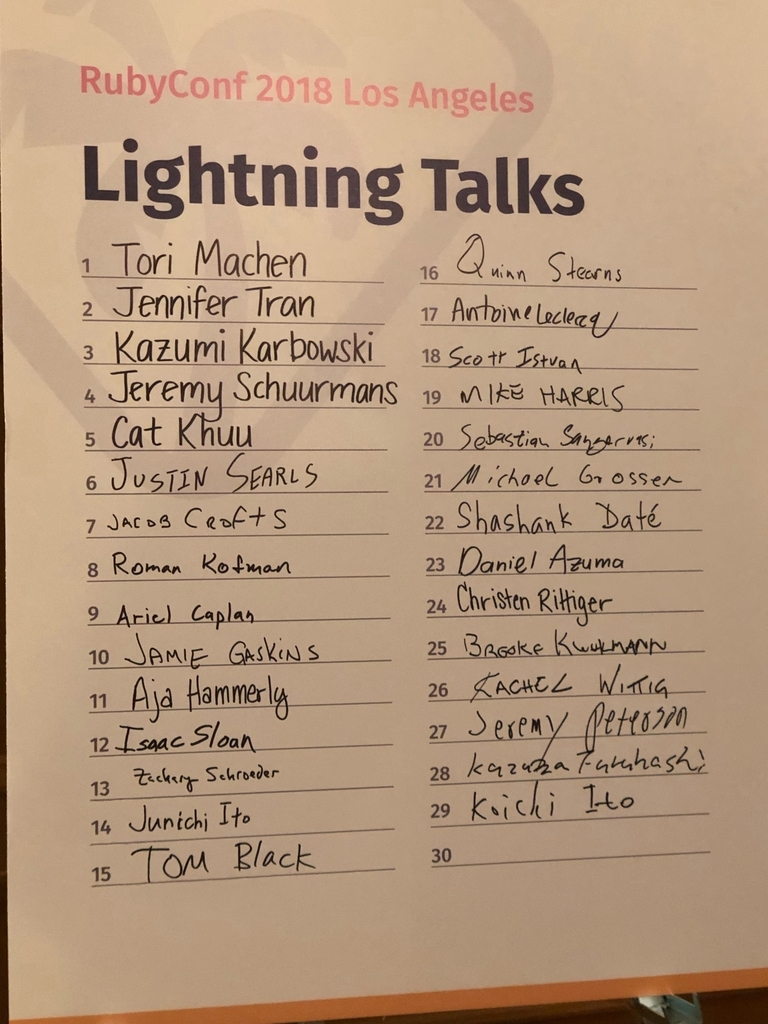 RubyConf 2018 Los Angeles
Lightning Talks
1 Tori Machen
2 Jennifer Tran
3 Kazumi Karbowski
4 Jeremy Schuurmans
5 Cat Khuu
6 JUSTIN SEARLS
7 JACOB CROFTS
8 Roman Kofman
9 Ariel Caplan
10 JAMIE GASKINS
11 Aja Hammerly
12 Isaac Sloan
13 Zachary Schroeder
14 Junichi Ito
15 TOM Black
16 Quinn Stearns
17 Antoine Leclercq
18 Scott Istvan
19 MIKE HARRIS
20 Sebastian
21 Michael Grosser
22 Shashank Daté
23 Daniel Azuma
24 Christen Rittiger
25 BROOKE
26 RACHEL WITTIG
27 Jeremy Peterson
28 Furuhashi
29 Koichi Ito
30